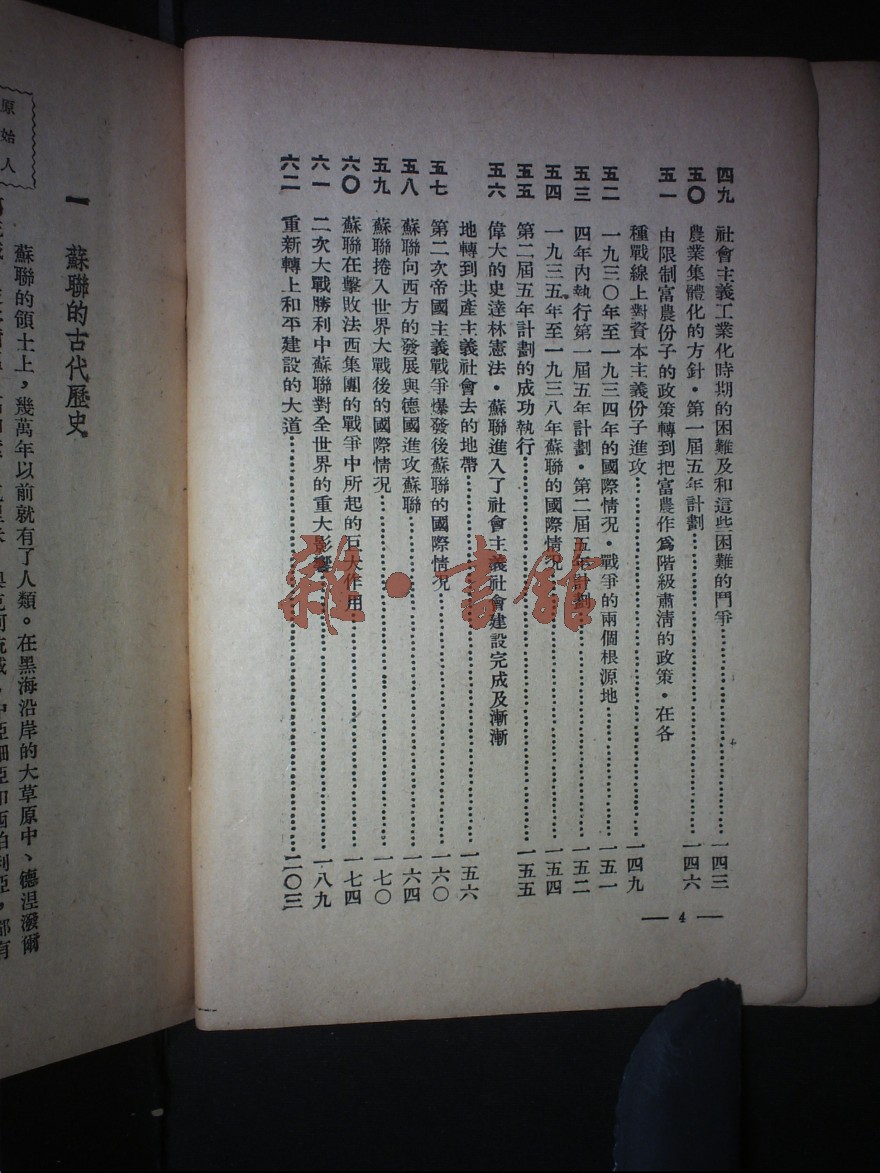 四九 社會主義工業化時期的困難及和這些困難的鬥爭……一四三
五〇 農業集體化的方針・第一屆五年計劃……一四六
五一 由限制富農份子的政策轉到把富農作爲階級肅清的政策・在各
種戰線上對資本主義份子進攻……一四九
五二 一九三〇年至一九三四年的國際情況・戰爭的兩個根源地……一五一
五三 四年內執行第一屆五年計劃・第二屆五年計劃……一五二
五四 一九三五年至一九三八年蘇聯的國際情況……一五四
五五 第二屆五年計劃的成功執行……一五五
五六 偉大的史達林憲法・蘇聯進入了社會主義社會建設完成及漸漸
地轉到共產主義社會去的地帶……一五六
五七 第二次帝國主義戰爭爆發後蘇聯的國際情況……一六〇
五八 蘇聯向西方的發展與德國進攻蘇聯……一六四
五九 蘇聯捲入世界大戰後的國際情況……一七〇
六〇 蘇聯在擊敗法西集團的戰爭中所起的巨大作用……一七四
六一 二次大戰勝利中蘇聯對全世界的重大影響……一八九
六二 重新轉上和平建設的大道……二〇三
— 4 —
雜・書館
一 蘇聯的古代歷史
原始人
蘇聯的領土上，幾萬年以前就有了人類。在黑海沿岸的大草原中、德涅潑爾